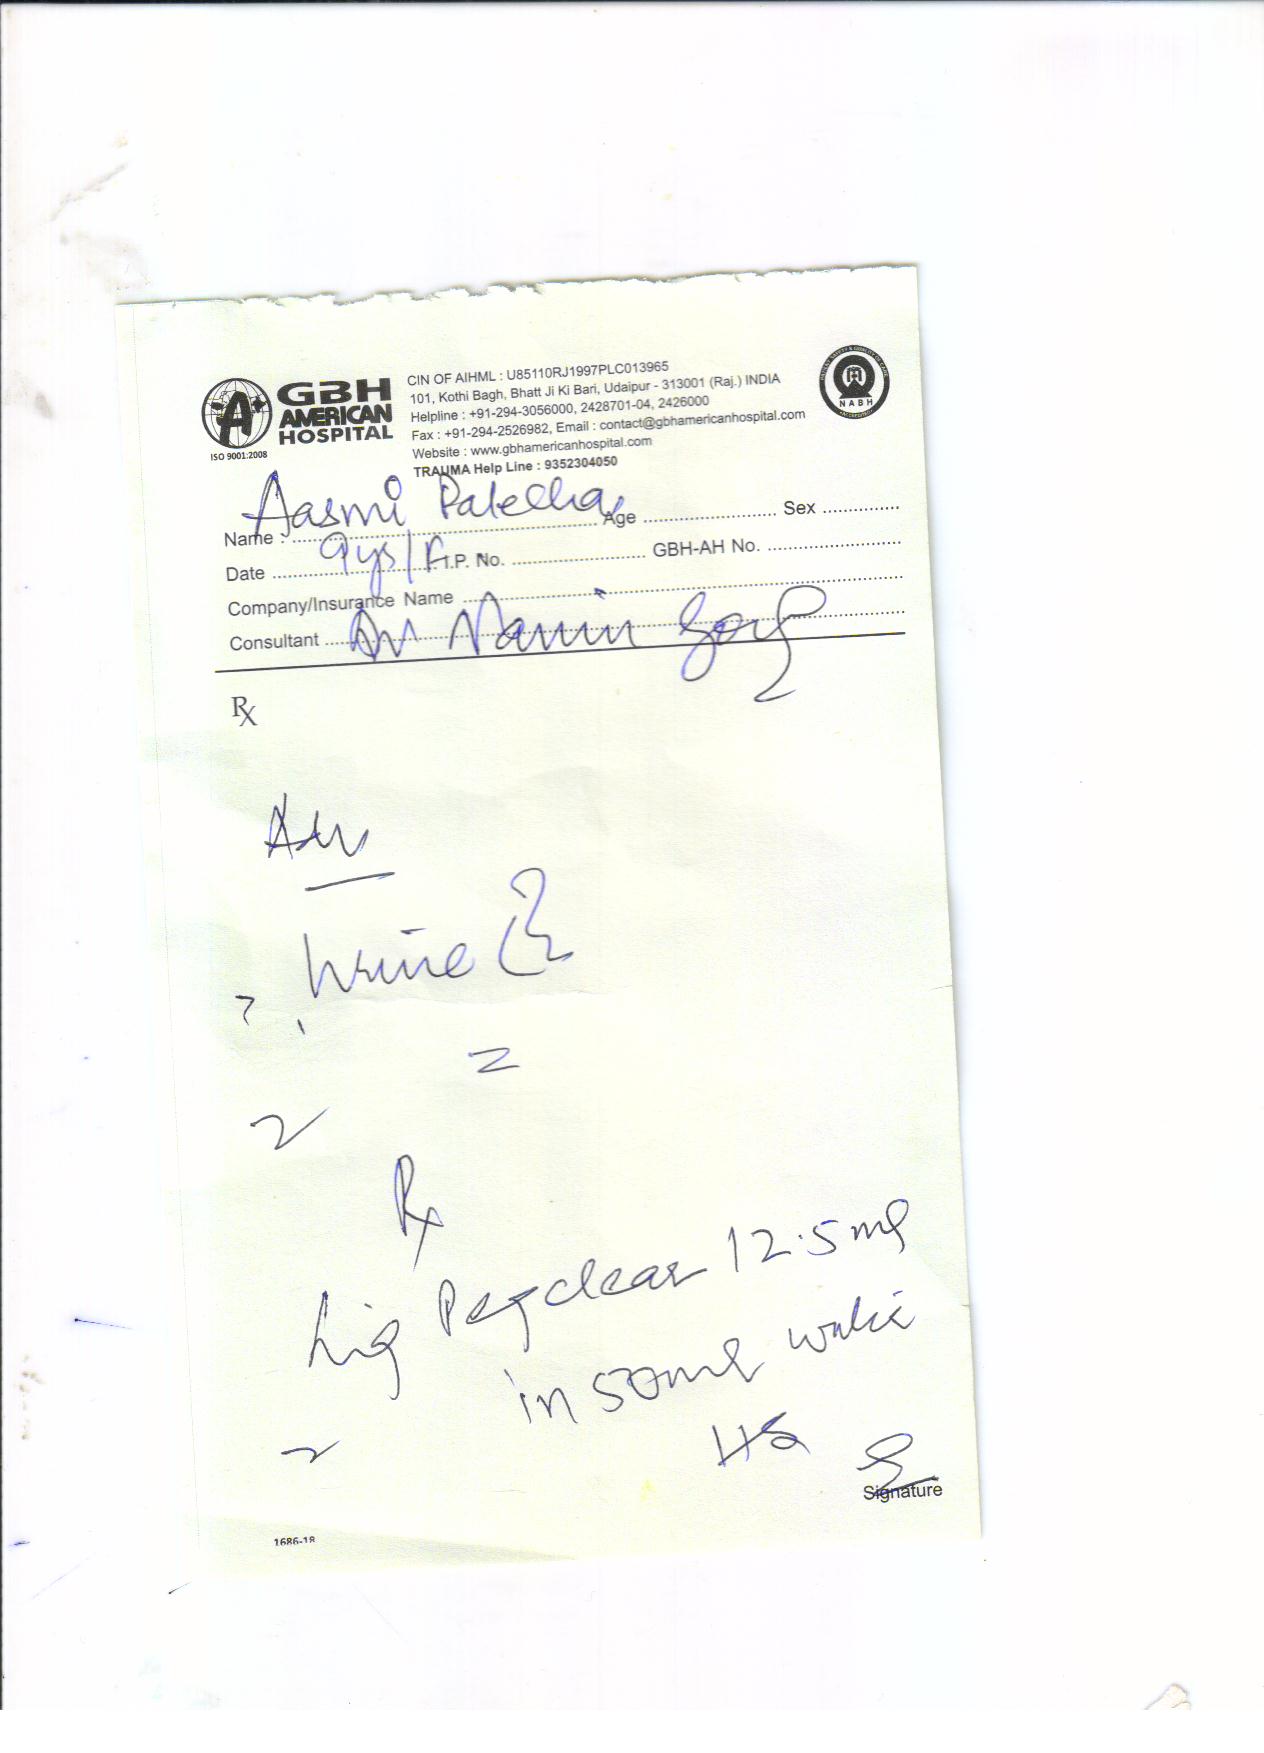 GBH
AMERICAN
HOSPITAL
ISO 9001:2008
CIN OF AIHML : U85110RJ1997PLC013965
101, Kothi Bagh, Bhatt Ji Ki Bari, Udaipur - 313001 (Raj.) INDIA
Helpline : +91-294-3056000, 2428701-04, 2426000
Fax : +91-294-2526982, Email : contact@gbhamericanhospital.com
Website : www.gbhamericanhospital.com
TRAUMA Help Line : 9352304050
NABH
Name : Aasmi Age Sex
Date 9ys/F I.P. No. GBH-AH No.
Company/Insurance Name
Consultant Dr
Rx
Adv
Urine
Rx
Liq Pegclear 12.5ml
in 50ml
HS
Signature
1686-18